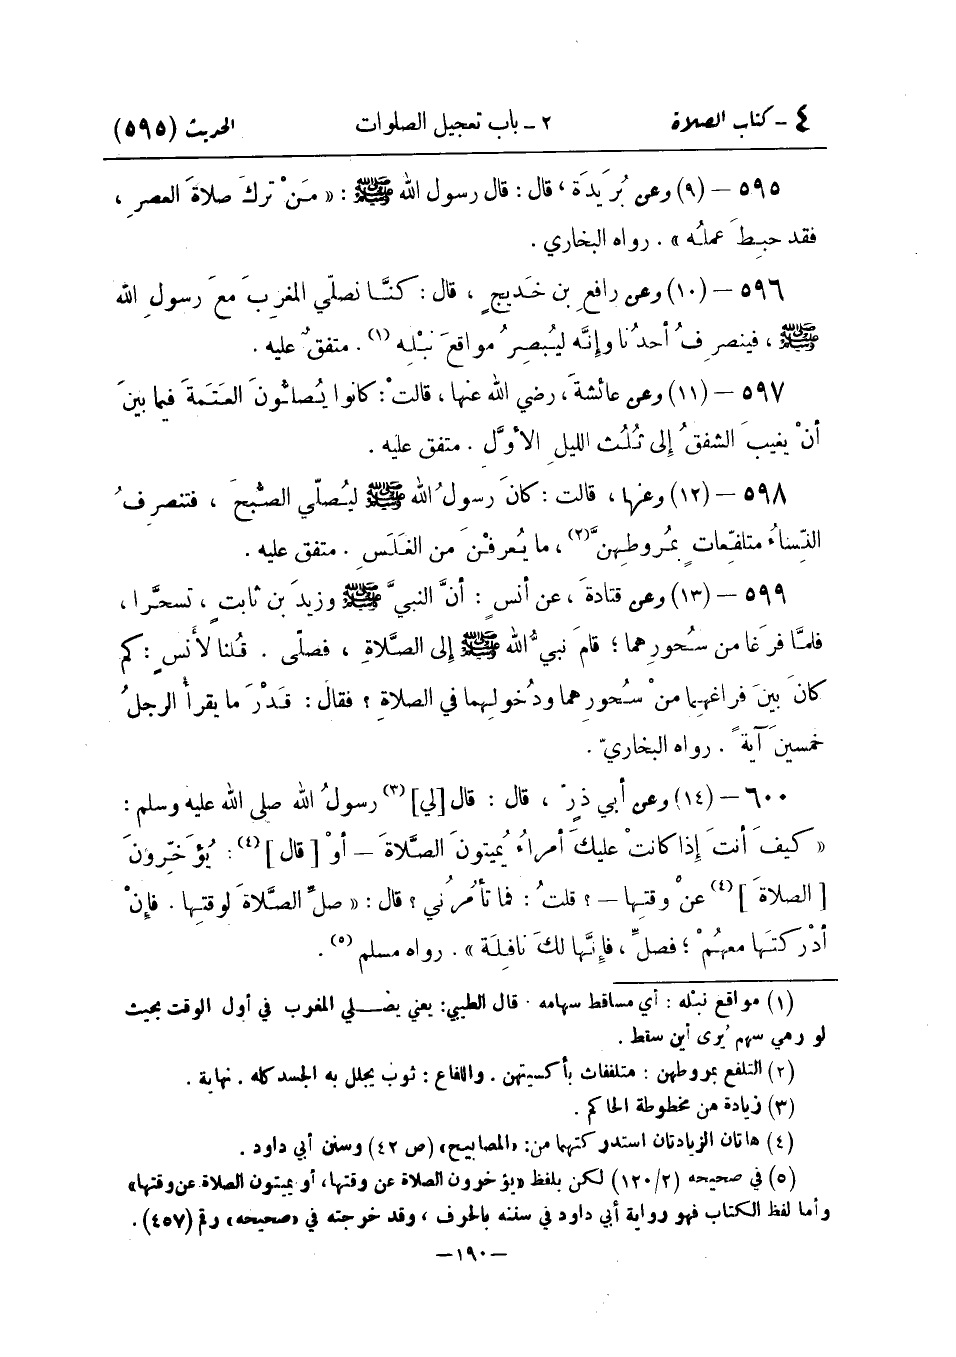 ٤ - كتاب الصلاة ٢ - باب تعجيل الصلوات الحديث (٥٩٥)
٥٩٥ - (٩) وعن بُرَيدَة ، قال : قال رسول الله ﷺ : « مَنْ تركَ صلاةَ العصرِ ،
فقد حبِطَ عملُه » . رواه البخاري .
٥٩٦ - (١٠) وعن رافعِ بن خَديجٍ ، قال : كنَّا نصلّي المغربَ معَ رسولِ الله
ﷺ ، فينصرفُ أحدُنا وإنَّه ليُبصِرُ مواقعَ نَبْلِه (١) . متفقٌ عليه .
٥٩٧ - (١١) وعن عائشةَ ، رضي الله عنها ، قالتْ : كانوا يُصلّونَ العَتَمةَ فيما بينَ
أنْ يغيبَ الشفقُ إلى ثُلُث الليلِ الأوَّلِ . متفق عليه .
٥٩٨ - (١٢) وعنها ، قالت : كانَ رسولُ الله ﷺ ليُصلّي الصُّبحَ ، فتنصرفُ
النِّساءُ متلفِّعاتٍ بمُروطِهِنَّ (٢) ، ما يُعرفْنَ من الغَلَسِ . متفق عليه .
٥٩٩ - (١٣) وعن قتادةَ ، عن أنسٍ : أنَّ النبيَّ ﷺ وزيدَ بن ثابتٍ ، تسحَّرا ،
فلمَّا فرَغا من سُحورِهما ؛ قامَ نبيُّ الله ﷺ إلى الصَّلاةِ ، فصلّى . قُلنا لأنسٍ : كم
كانَ بينَ فراغهِما منْ سُحورِهما ودُخولِهما في الصلاةِ ؟ فقالَ : قَدْرَ ما يقرأُ الرجلُ
خمسينَ آيةً . رواه البخاريّ .
٦٠٠ - (١٤) وعن أبي ذرٍ ، قال : قال [لي] (٣) رسولُ الله صلى الله عليه وسلم :
« كيفَ أنتَ إذا كانتْ عليكَ أمراءُ يُميتونَ الصَّلاةَ - أوْ [ قال ] (٤) : يُؤَخِّرونَ
[ الصلاةَ ] (٤) عنْ وقتِها - ؟ قلتُ : فما تأمُرُني ؟ قال : « صلِّ الصَّلاةَ لوقتِها . فإنْ
أدْركتَها معهُمْ ؛ فصلِّ ، فإنَّها لكَ نافِلَة » . رواه مسلم (٥) .
(١) مواقع نبْله : أي مساقط سهامه . قال الطيبي : يعني يصلي المغرب في أول الوقت بحيث
لو رمي سهم يُرى أين سقط .
(٢) التلفع بمروطهن : متلفعات بأكسيتهن . واللفاع : ثوب يجلل به الجسد كله . نهاية .
(٣) زيادة من مخطوطة الحاكم .
(٤) هاتان الزيادتان استدركتهما من : «المصابيح» (ص ٤٢) وسنن أبي داود .
(٥) في صحيحه (٢/ ١٢٠) لكن بلفظ «يؤخرون الصلاة عن وقتها، أو يميتون الصلاة عن وقتها»
وأما لفظ الكتاب فهو رواية أبي داود في سننه بالحرف ، وقد خرجته في «صحيحه» رقم (٤٥٧) .
- ١٩٠ -